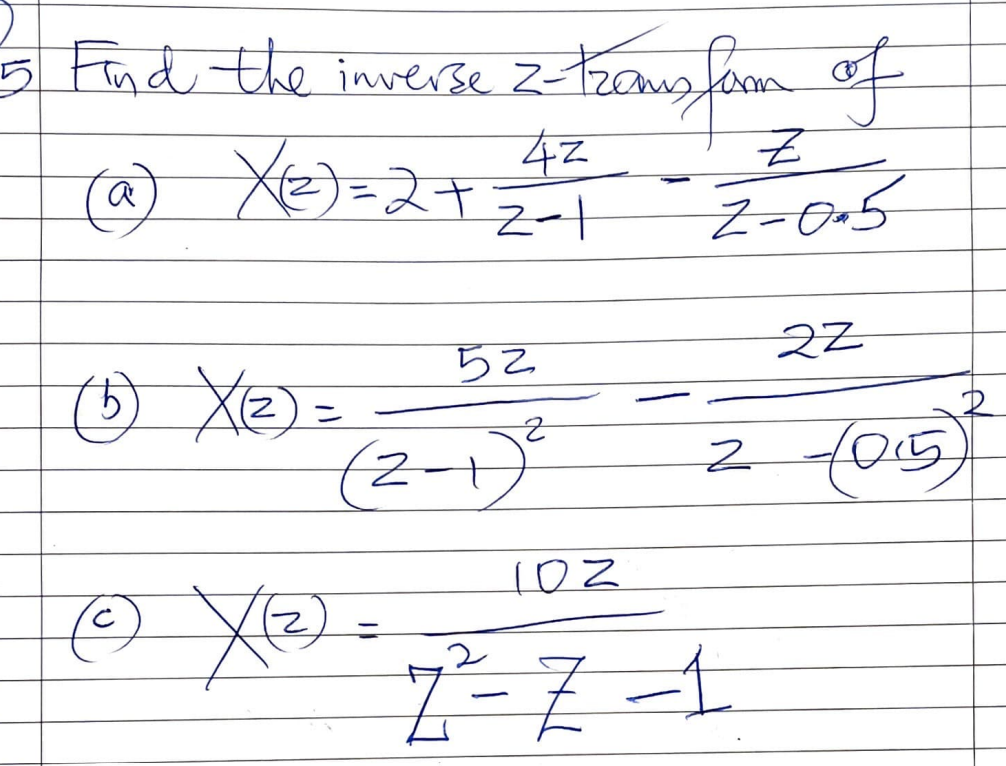 5 Find the inverse z-transform of
(a) X(z) = 2 + 4z/(z-1) - z/(z-0.5)
(b) X(z) = 5z/(z-1)² - 2z/(z-(0.5)²)
(c) X(z) = 10z/(z²-z-1)